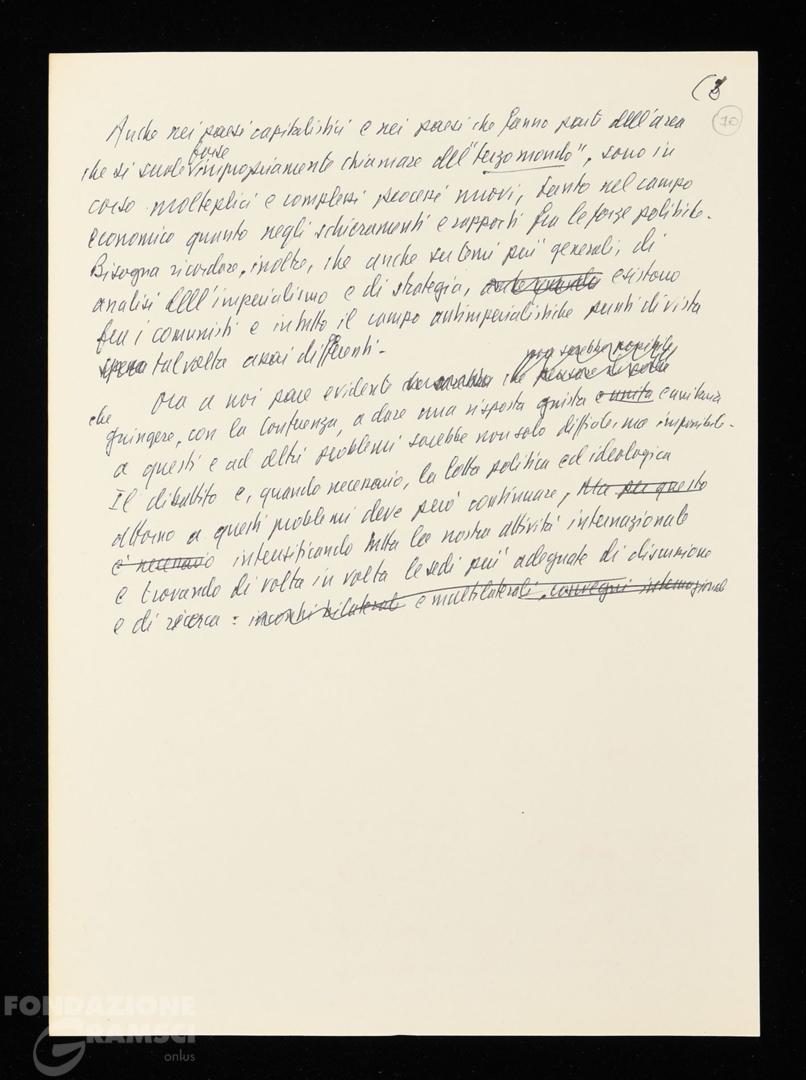 (8
10
Anche nei paesi capitalistici e nei paesi che fanno parte dell'area
che si suole forse impropriamente chiamare del "terzo mondo", sono in
corso molteplici e complessi processi nuovi, tanto nel campo
economico quanto negli schieramenti e rapporti fra le forze politiche.
Bisogna ricordare, inoltre, che anche su temi più generali, di
analisi dell'imperialismo e di strategia, esistono
fra i comunisti e in tutto il campo antimperialistico punti di vista
talvolta assai differenti.
Ora a noi pare evidente che
che giungere, con la Conferenza, a dare una risposta giusta e unita e unitaria
a questi e ad altri problemi sarebbe non solo difficile, ma impossibile.
Il dibattito e, quando necessario, la lotta politica ed ideologica
attorno a questi problemi deve però continuare, Ma per questo
è necessario intensificando tutta la nostra attività internazionale
e trovando di volta in volta le sedi più adeguate di discussione
e di ricerca: incontri bilaterali e multilaterali, convegni internazionali
FONDAZIONE
GRAMSCI
onlus